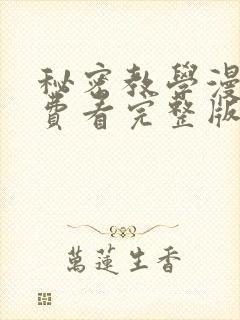 秘密教學漫
費看完整版
萬蓮生香